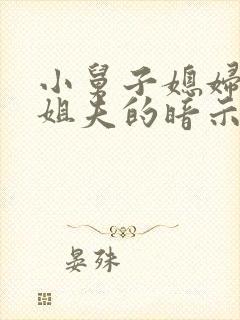 小舅子媳妇
姐夫的暗示
晏殊